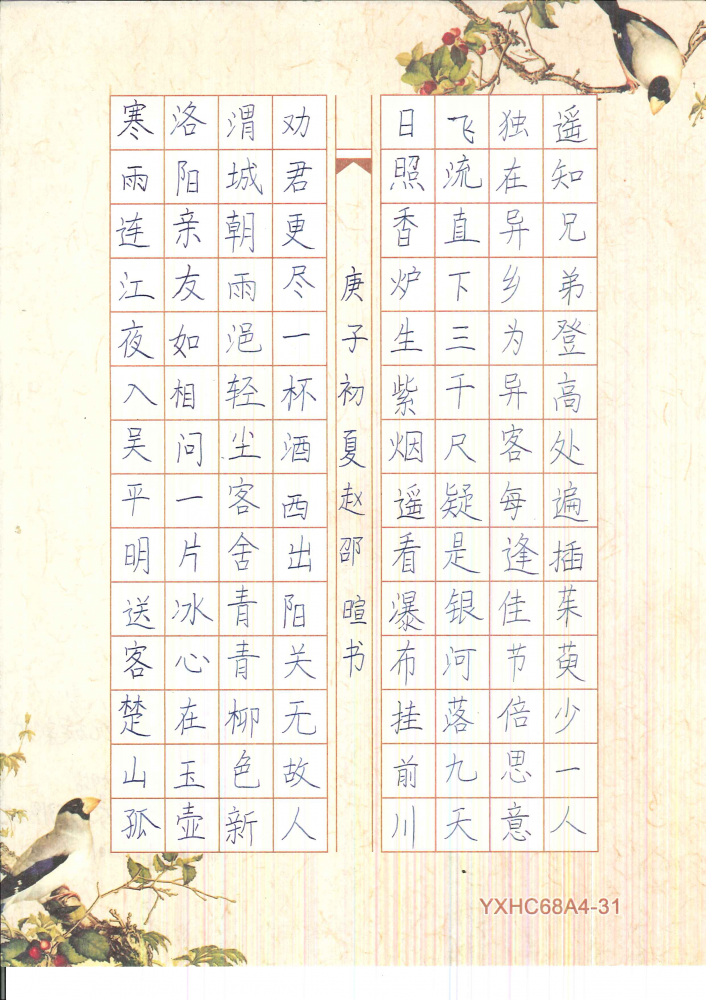 寒雨连江夜入吴平明送客楚山孤
洛阳亲友如相问一片冰心在玉壶
渭城朝雨浥轻尘客舍青青柳色新
劝君更尽一杯酒西出阳关无故人
庚子初夏赵邵暄书
日照香炉生紫烟遥看瀑布挂前川
飞流直下三千尺疑是银河落九天
独在异乡为异客每逢佳节倍思意
遥知兄弟登高处遍插茱萸少一人
YXHC68A4-31